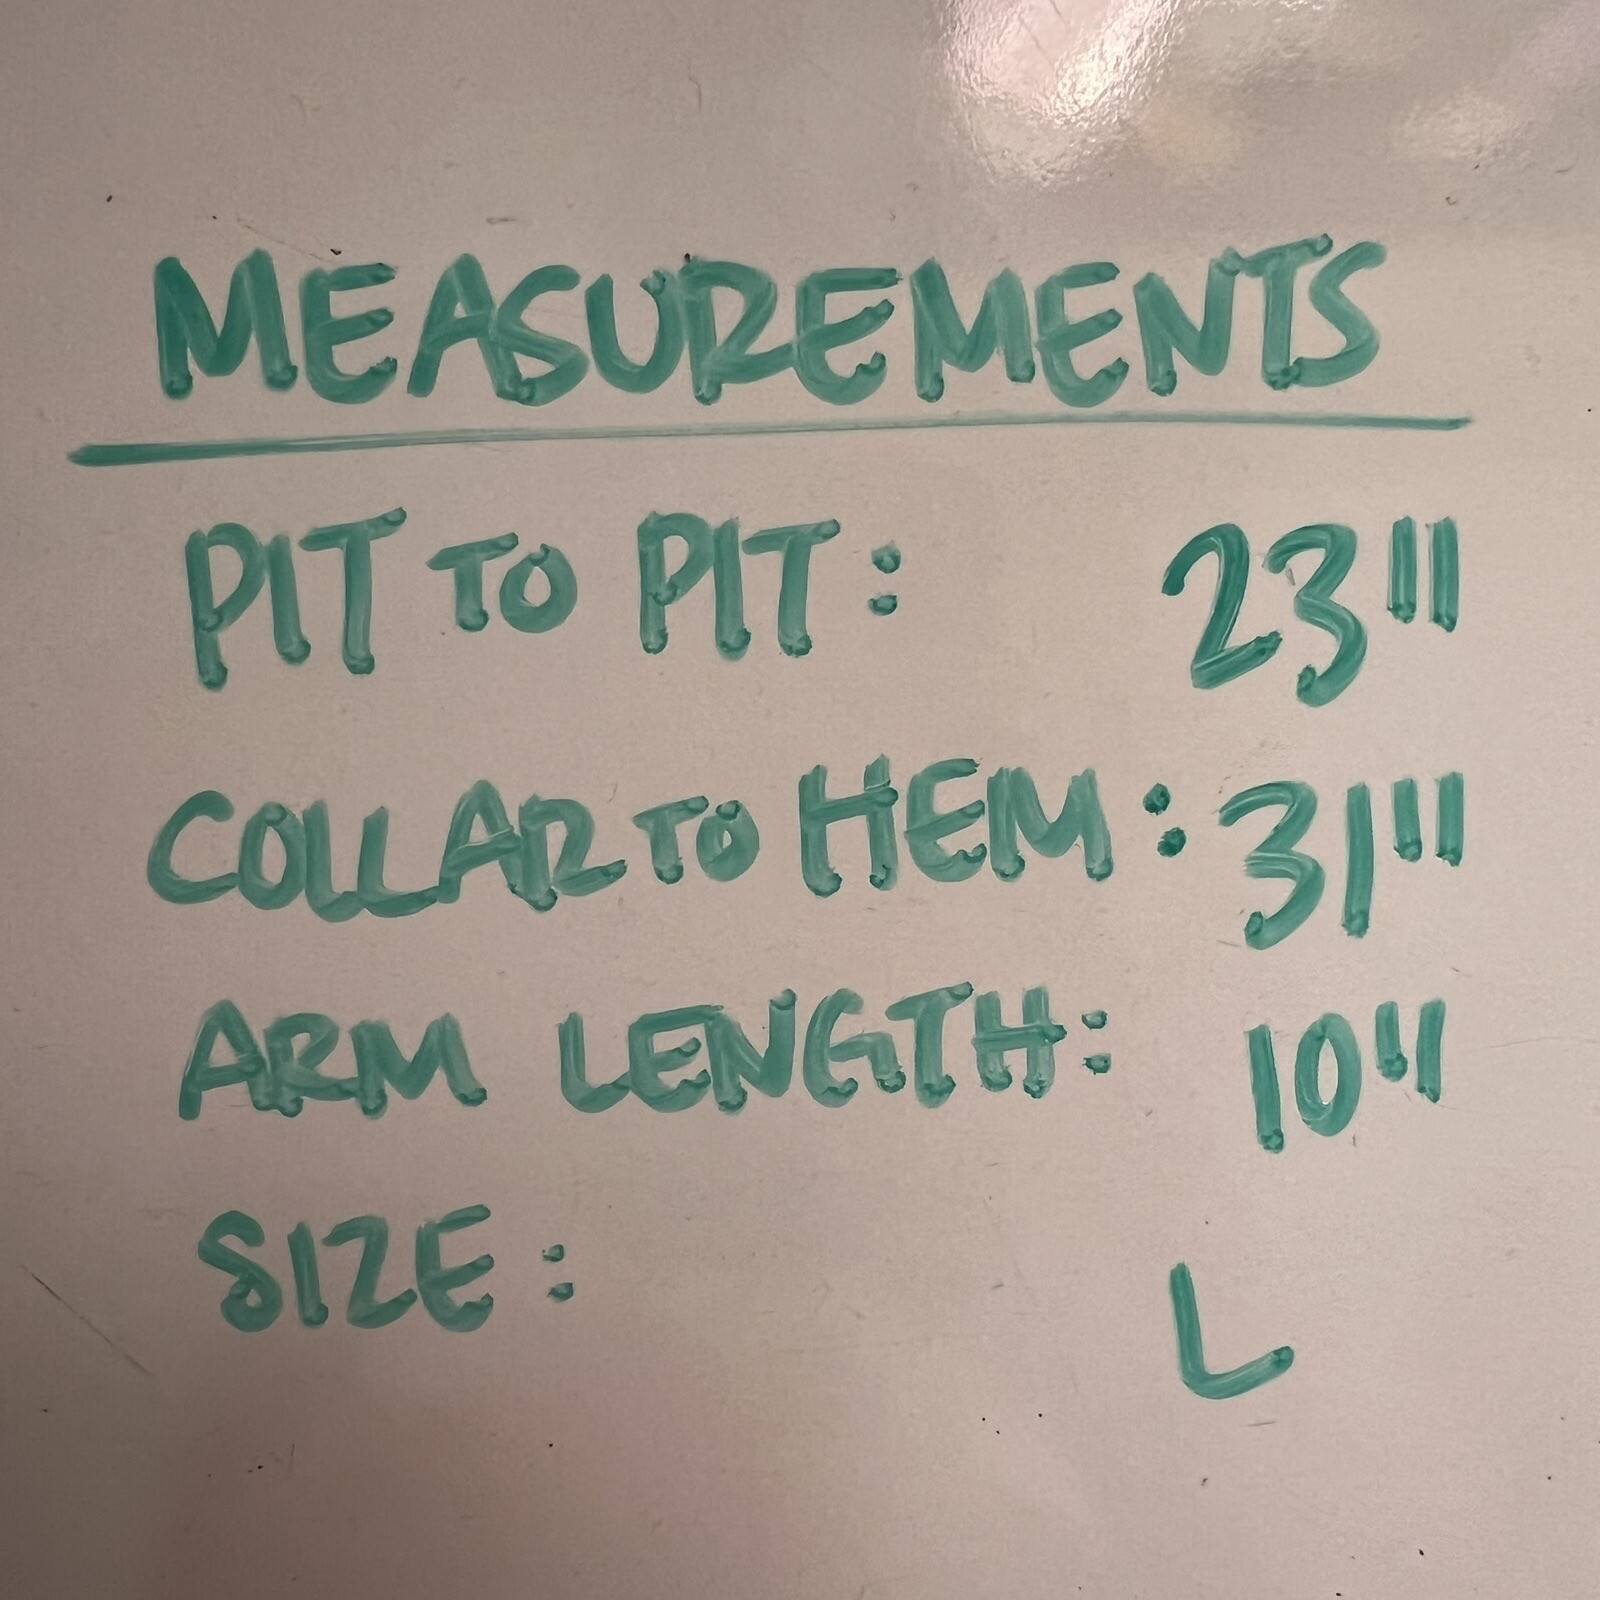 MEASUREMENTS
PIT TO PIT: 23"
COLLAR TO HEM: 31"
ARM LENGTH: 10"
SIZE: L